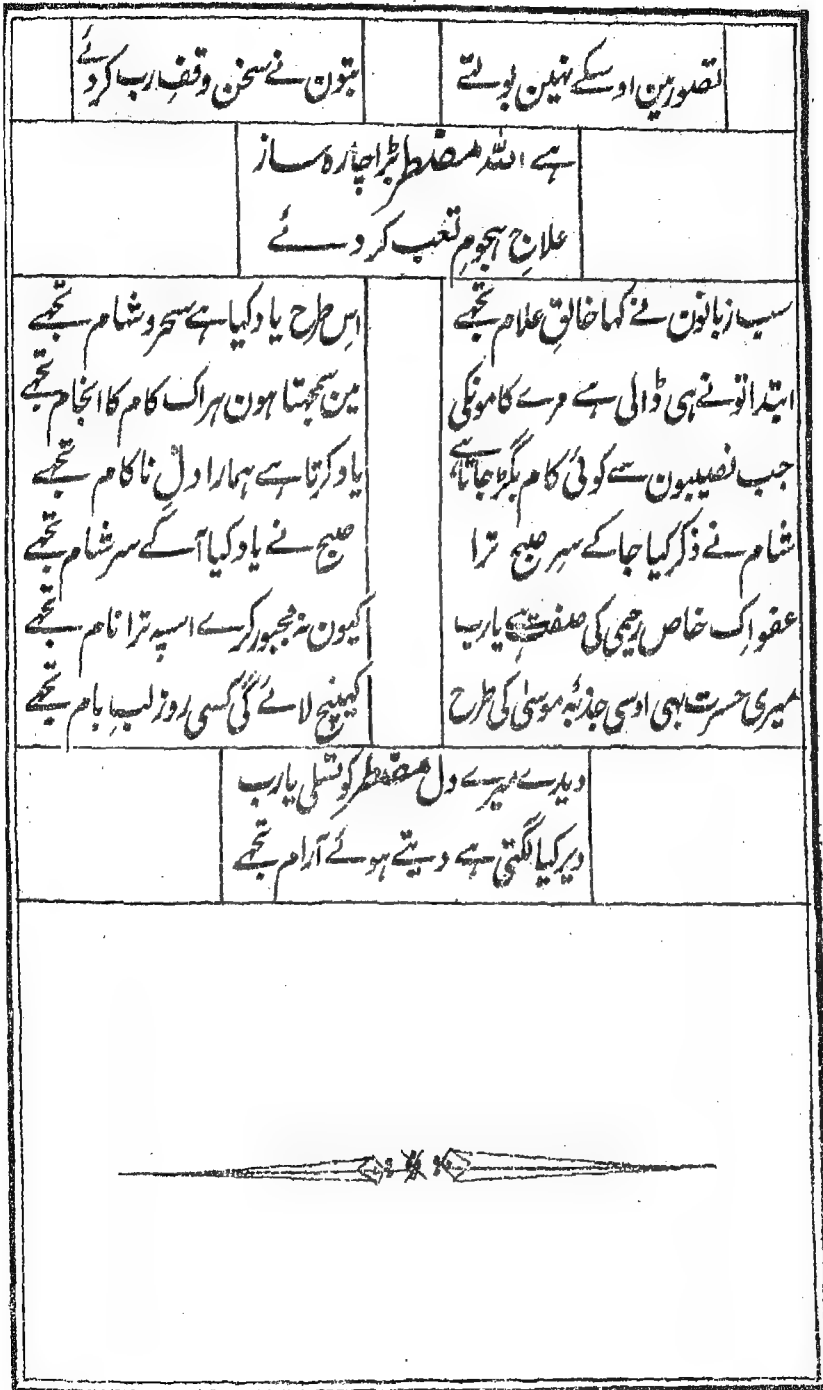 تصور مین اوسکے نہین بولتے
بتون نے سخن وقفِ رب کر دئے
ہے اللہ مضطر بڑا چارہ ساز
علاجِ ہجومِ تعب کر دئے
سب زبانون نے کہا خالقِ علام تجھے
اِس طرح یاد کیا ہے سحر و شام تجھے
ابتدا تو نے ہی ڈالی ہے مرے کامونکی
مین سمجھتا ہون ہر اک کام کا انجام تجھے
جب نصیبون سے کوئی کام بگڑ جاتا ہے
یاد کرتا ہے ہمارا دلِ ناکام تجھے
شام نے ذکر کیا جا کے سرِ صبح ترا
صبح نے یاد کیا آ کے سرِ شام تجھے
عفو اِک خاص رحیمی کی صفت ہے یارب
کیون نہ مجبور کرے اسپہ ترا نام تجھے
میری حسرت بھی اوسی جذبۂ موسیٰ کی طرح
کھینچ لائے گی کسی روز لبِ بام تجھے
دیدے میرے دل مضطر کو تسلی یارب
دیر کیا لگتی ہے دیتے ہوئے آرام تجھے